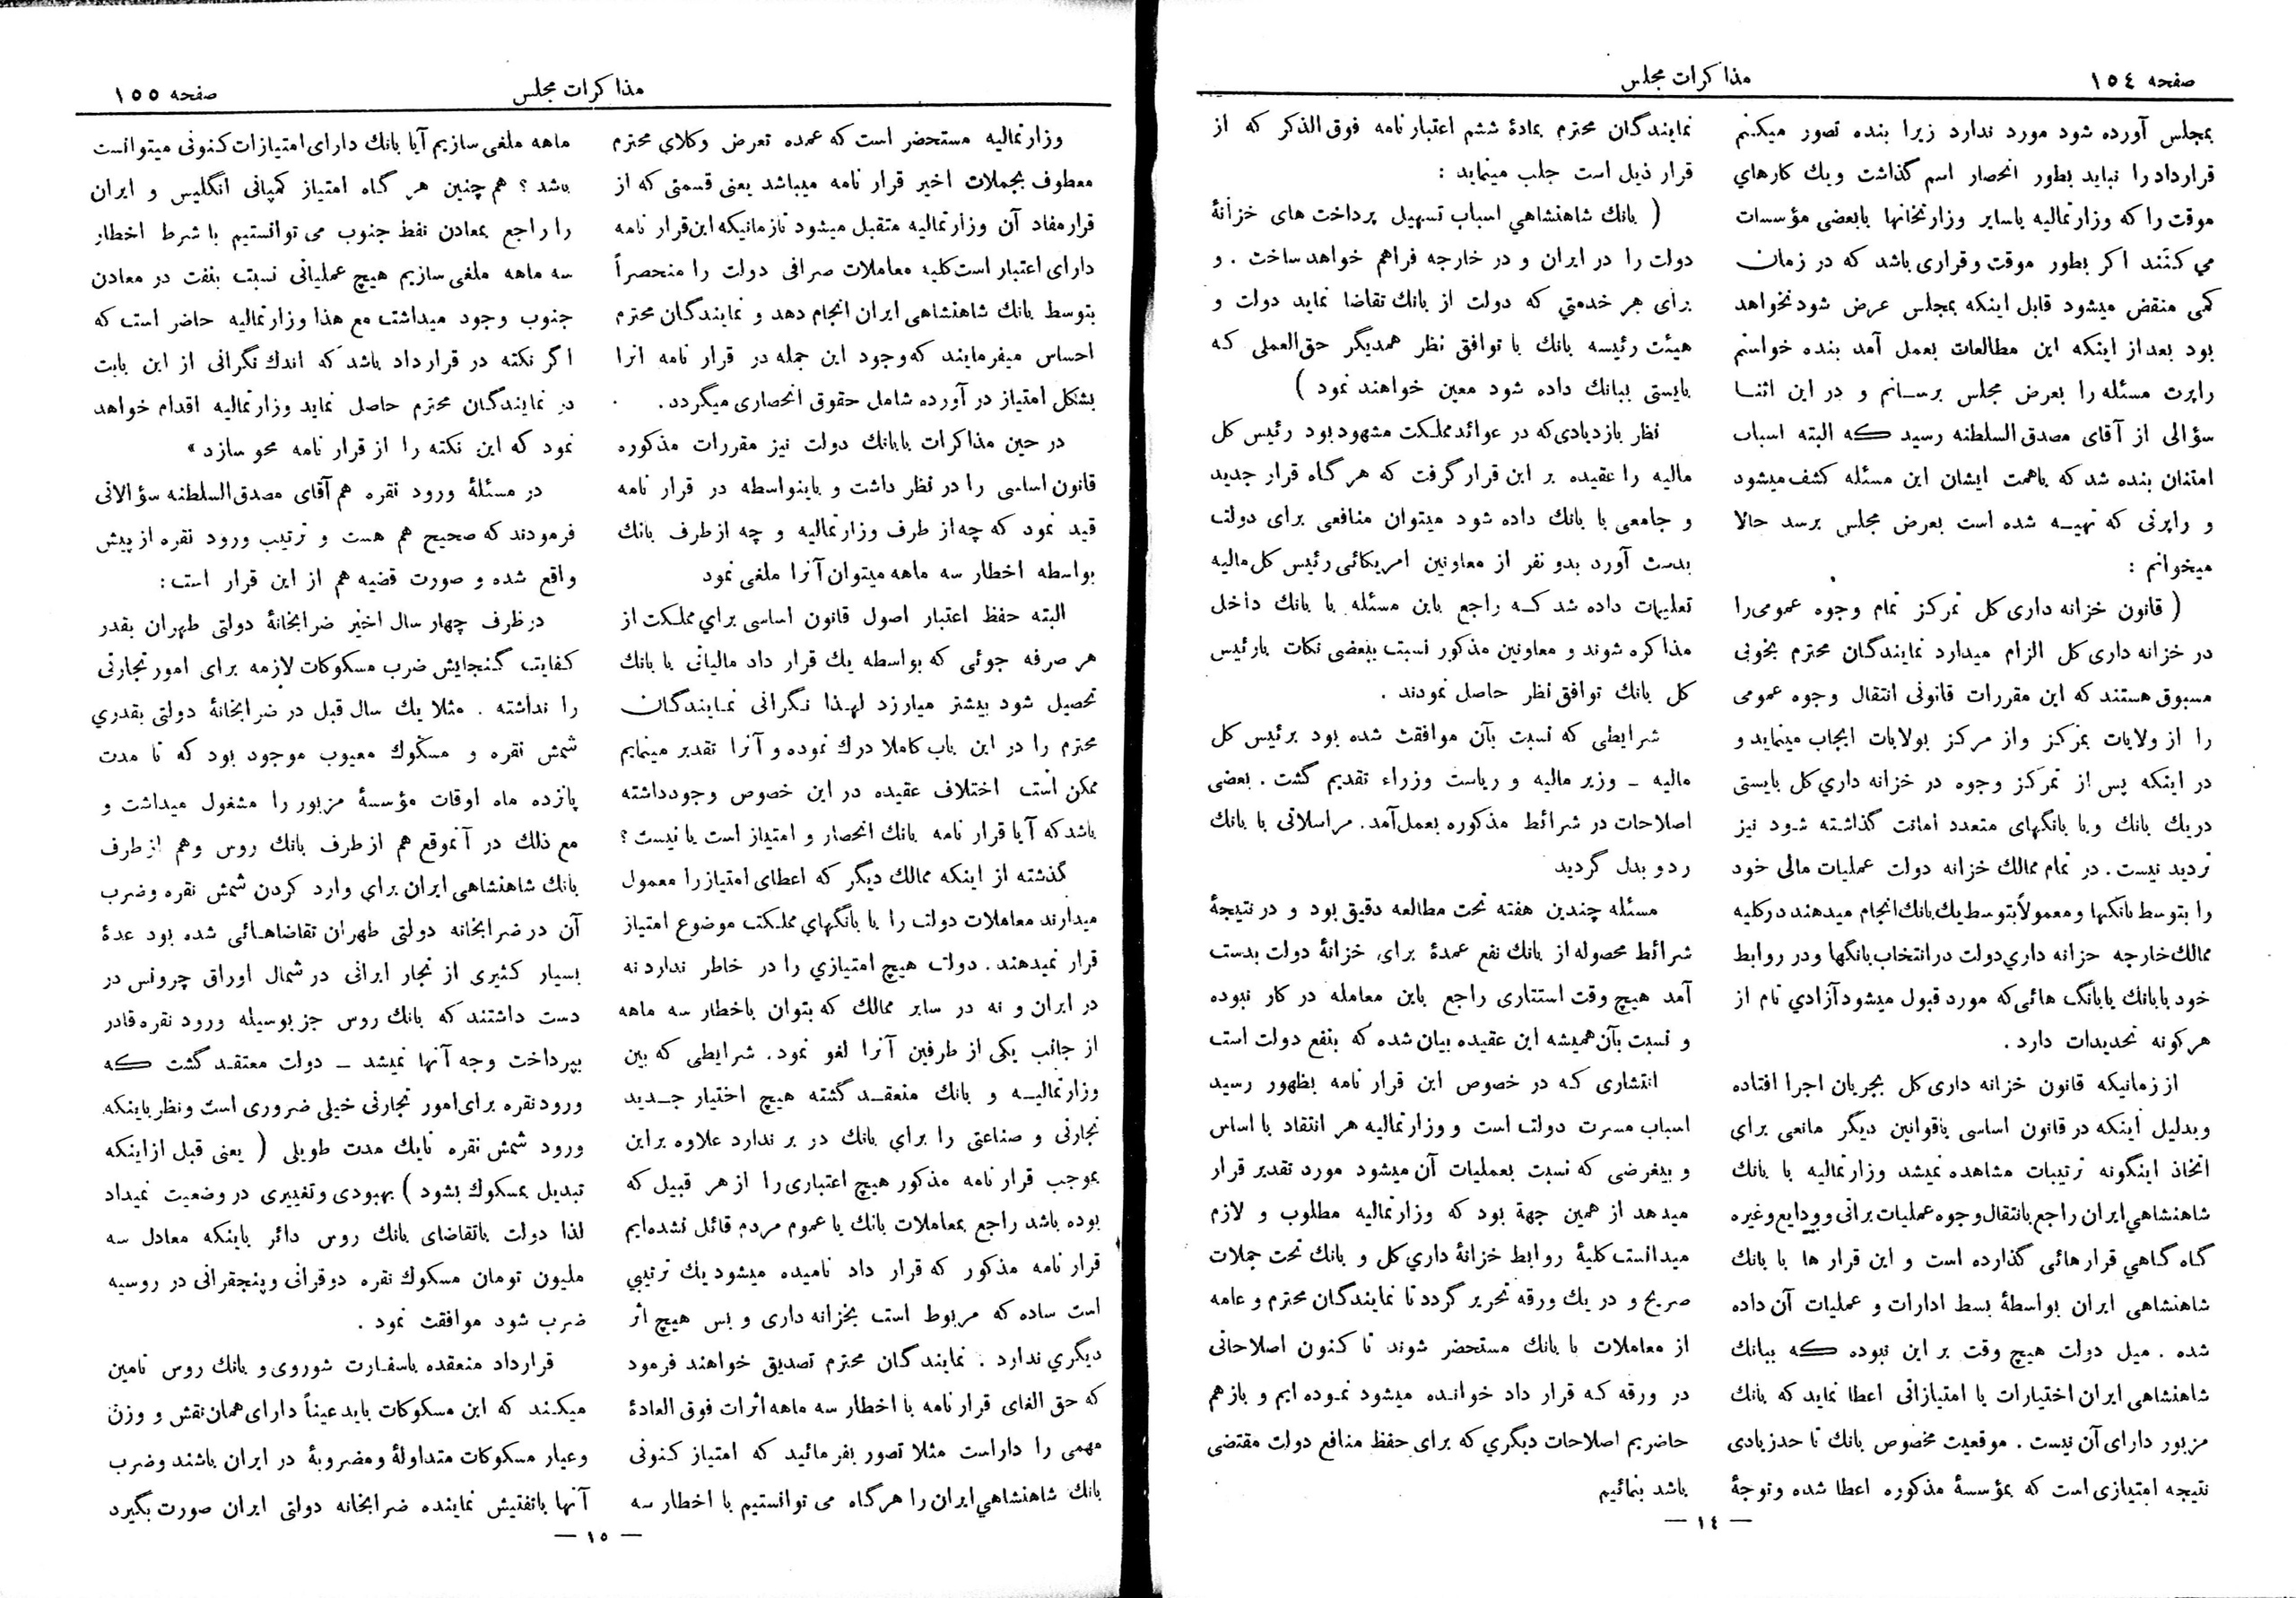 صفحه ١٥٤
مذاکرات مجلس
بمجلس آورده شود مورد ندارد زیرا بنده تصور میکنم
قرارداد را نباید بطور انحصار اسم گذاشت ویک کارهاي
موقت را که وزارتمالیه یاسایر وزارتخانها بابعضی مؤسسات
می کنند اکر بطور موقت وقراری باشد که در زمان
کمی منقض میشود قابل اینکه بمجلس عرض شود نخواهد
بود بعد از اینکه این مطالعات بعمل آمد بنده خواستم
راپرت مسئله را بعرض مجلس برسانم و در این اثنا
سؤالی از آقای مصدق السلطنه رسید که البته اسباب
امتنان بنده شد که باهمت ایشان این مسئله کشف میشود
و راپرتی که تهیه شده است بعرض مجلس برسد حالا
میخوانم :
( قانون خزانه داری کل تمرکز تمام وجوه عمومی را
در خزانه داری کل الزام میدارد نمایندگان محترم بخوبی
مسبوق هستند که این مقررات قانونی انتقال وجوه عمومی
را از ولایات بمرکز واز مرکز بولایات ایجاب مینماید و
در اینکه پس از تمرکز وجوه در خزانه داري کل بایستی
دریک بانك ویا بانگهای متعدد امانت گذاشته شود نیز
تردید نیست . در تمام ممالك خزانه دولت عملیات مالی خود
را بتوسط بانکها و معمولاً بتوسط یك بانك انجام میدهند در کلیه
ممالك خارجه خزانه داري دولت در انتخاب بانگها و در روابط
خود با بانك یا بانگ هائی که مورد قبول میشود آزادي تام از
هر کونه تحدیدات دارد .
از زمانیکه قانون خزانه داری کل بجریان اجرا افتاده
وبدلیل اینکه در قانون اساسی یاقوانین دیگر مانعی برای
اتخاذ اینگونه ترتیبات مشاهده نمیشد وزارتمالیه با بانك
شاهنشاهي ایران راجع بانتقال وجوه عملیات براتی و ودایع وغیره
گاه گاهي قرار هائی گذارده است و این قرار ها با بانك
شاهنشاهی ایران بواسطهٔ بسط ادارات و عملیات آن داده
شده . میل دولت هیچ وقت بر این نبوده که ببانك
شاهنشاهی ایران اختیارات یا امتیازاتی اعطا نماید که بانك
مزبور دارای آن نیست . موقعیت مخصوص بانك تا حد زیادی
نتیجه امتیازی است که بمؤسسهٔ مذکوره اعطا شده وتوجهٔ
نمایندگان محترم بمادهٔ ششم اعتبار نامه فوق الذکر که از
قرار ذیل است جلب مینماید :
( بانك شاهنشاهي اسباب تسهیل پرداخت های خزانهٔ
دولت را در ایران و در خارجه فراهم خواهد ساخت . و
برای هر خدمتي که دولت از بانك تقاضا نماید دولت و
هیئت رئیسه بانك با توافق نظر همدیگر حق العملی که
بایستی ببانك داده شود معین خواهند نمود )
نظر بازدیادی که در عوائد مملکت مشهود بود رئیس کل
مالیه را عقیده بر این قرار گرفت که هر گاه قرار جدید
و جامعی با بانك داده شود میتوان منافعی برای دولت
بدست آورد بدو نفر از معاونین امریکائی رئیس کل مالیه
تعلیمات داده شد که راجع باین مسئله با بانك داخل
مذاکره شوند و معاونین مذکور نسبت ببعضی نکات بارئیس
کل بانك توافق نظر حاصل نمودند .
شرایطی که نسبت بآن موافقت شده بود برئیس کل
مالیه ـ وزیر مالیه و ریاست وزراء تقدیم گشت . بعضی
اصلاحات در شرائط مذکوره بعمل آمد . مراسلاتی با بانك
رد و بدل گردید
مسئله چندین هفته تحت مطالعه دقیق بود و در نتیجهٔ
شرائط محصوله از بانك نفع عمدهٔ برای خزانهٔ دولت بدست
آمد هیچ وقت استتاری راجع باین معامله در کار نبوده
و نسبت بآن همیشه این عقیده بیان شده که بنفع دولت است
انتشاری که در خصوص این قرار نامه بظهور رسید
اسباب مسرت دولت است و وزارتمالیه هر انتقاد با اساس
و بیغرضی که نسبت بعملیات آن میشود مورد تقدیر قرار
میدهد از همین جهة بود که وزارتمالیه مطلوب و لازم
میدانست کلیهٔ روابط خزانهٔ داري کل و بانك تحت جملات
صریح و در یك ورقه تحریر گردد تا نمایندگان محترم و عامه
از معاملات با بانك مستحضر شوند تا کنون اصلاحاتی
در ورقه که قرار داد خوانده میشود نموده ایم و باز هم
حاضریم اصلاحات دیگري که برای حفظ منافع دولت مقتضی
باشد بنمائیم
— ١٤ —
مذاکرات مجلس
صفحه ١٥٥
وزارتمالیه مستحضر است که عمده تعرض وکلاي محترم
معطوف بجملات اخیر قرار نامه میباشد یعنی قسمتی که از
قرار مفاد آن وزارتمالیه متقبل میشود تا زمانیکه این قرار نامه
دارای اعتبار است کلیه معاملات صرافی دولت را منحصراً
بتوسط بانك شاهنشاهی ایران انجام دهد و نمایندگان محترم
احساس میفرمایند که وجود این جمله در قرار نامه انرا
بشکل امتیاز در آورده شامل حقوق انحصاری میگردد .
در حین مذاکرات بابانك دولت نیز مقررات مذکوره
قانون اساسی را در نظر داشت و باینواسطه در قرار نامه
قید نمود که چه از طرف وزارتمالیه و چه از طرف بانك
بواسطه اخطار سه ماهه میتوان آنرا ملغی نمود
البته حفظ اعتبار اصول قانون اساسی براي مملکت از
هر صرفه جوئی که بواسطه یك قرار داد مالیاتی با بانك
تحصیل شود بیشتر میارزد لهذا نگرانی نمایندگان
محترم را در این باب کاملا درك نموده و آنرا تقدیر مینمایم
ممکن است اختلاف عقیده در این خصوص وجود داشته
باشد که آیا قرار نامه بانك انحصار و امتیاز است یا نیست ؟
گذشته از اینکه ممالك دیگر که اعطای امتیاز را معمول
میدارند معاملات دولت را با بانگهاي مملکت موضوع امتیاز
قرار نمیدهند . دولت هیچ امتیازي را در خاطر ندارد نه
در ایران و نه در سایر ممالك که بتوان باخطار سه ماهه
از جانب یکی از طرفین آنرا لغو نمود . شرایطی که بین
وزارتمالیه و بانك منعقد گشته هیچ اختیار جدید
تجارتی و صناعتی را براي بانك در بر ندارد علاوه براین
بموجب قرار نامه مذکور هیچ اعتباری را از هر قبیل که
بوده باشد راجع بمعاملات بانك یا عموم مردم قائل نشده ایم
قرار نامه مذکور که قرار داد نامیده میشود یك ترتیبي
است ساده که مربوط است بخزانه داری و بس هیچ اثر
دیگري ندارد . نمایندگان محترم تصدیق خواهند فرمود
که حق الغای قرار نامه با اخطار سه ماهه اثرات فوق العادهٔ
مهمی را داراست مثلا تصور بفرمائید که امتیاز کنونی
بانك شاهنشاهي ایران را هرگاه می توانستیم با اخطار سه
ماهه ملغی سازیم آیا بانك دارای امتیازات کنونی میتوانست
باشد ؟ هم چنین هر گاه امتیاز کمپانی انگلیس و ایران
را راجع بمعادن نفط جنوب می توانستیم با شرط اخطار
سه ماهه ملغی سازیم هیچ عملیاتی نسبت بنفت در معادن
جنوب وجود میداشت مع هذا وزارتمالیه حاضر است که
اگر نکته در قرار داد باشد که اندك نگرانی از این بابت
در نمایندگان محترم حاصل نماید وزارتمالیه اقدام خواهد
نمود که این نکته را از قرار نامه محو سازد »
در مسئلهٔ ورود نقره هم آقای مصدق السلطنه سؤالاتی
فرمودند که صحیح هم هست و ترتیب ورود نقره از پیش
واقع شده و صورت قضیه هم از این قرار است :
در ظرف چهار سال اخیر ضرابخانهٔ دولتی طهران بقدر
کفایت گنجایش ضرب مسکوکات لازمه برای امور تجارتی
را نداشته . مثلا یك سال قبل در ضرابخانهٔ دولتی بقدري
شمش نقره و مسکوك معیوب موجود بود که تا مدت
پانزده ماه اوقات مؤسسهٔ مزبور را مشغول میداشت و
مع ذلك در آنموقع هم از طرف بانك روس وهم از طرف
بانك شاهنشاهی ایران براي وارد کردن شمش نقره وضرب
آن در ضرابخانه دولتی طهران تقاضاهائی شده بود عدهٔ
بسیار کثیری از تجار ایرانی در شمال اوراق چرونس در
دست داشتند که بانك روس جز بوسیله ورود نقره قادر
بپرداخت وجه آنها نمیشد ـ دولت معتقد گشت که
ورود نقره برای امور تجارتی خیلی ضروری است ونظر باینکه
ورود شمش نقره تایك مدت طویلی ( یعنی قبل از اینکه
تبدیل بمسکوك بشود ) بهبودی و تغییری در وضعیت نمیداد
لذا دولت باتقاضای بانك روس دائر باینکه معادل سه
ملیون تومان مسکوك نقره دوقرانی وپنجقرانی در روسیه
ضرب شود موافقت نمود .
قرارداد منعقده باسفارت شوروی و بانك روس تامین
میکند که این مسکوکات باید عیناً دارای همان نقش و وزن
وعیار مسکوکات متداولهٔ ومضروبهٔ در ایران باشند وضرب
آنها باتفتیش نماینده ضرابخانه دولتی ایران صورت بگیرد
— ١٥ —